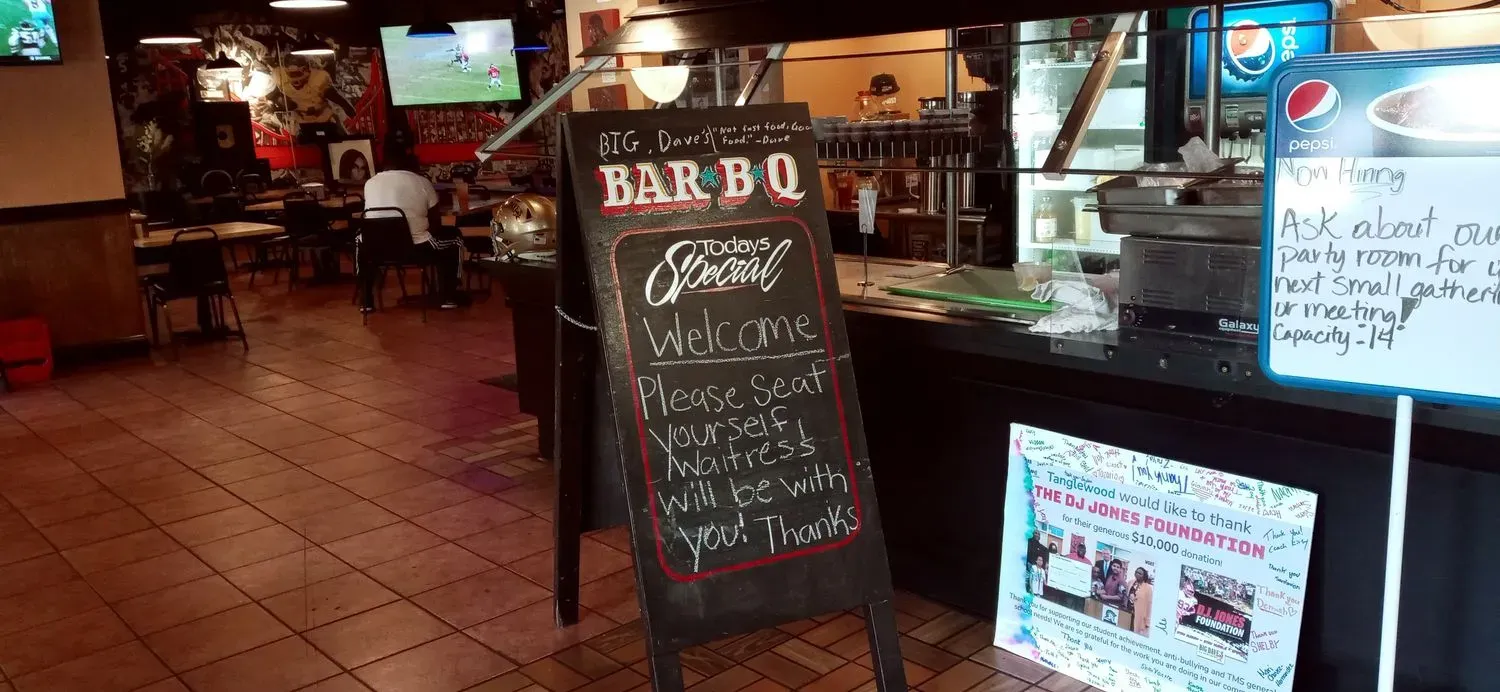 BIG, Dave's "Not fast food, Good
food." -Dave
BAR·B·Q
Todays
Special
Welcome
Please Seat
yourself,
Waitress
will be with
you! Thanks
Pepsi
pepsi
Now Hiring
Ask about our
party room for
next small
or meeting!
Capacity - 14
Galaxy
Tanglewood would like to thank
THE DJ JONES FOUNDATION
for their generous $10,000 donation!
DJ JONES
FOUNDATION
BIG DAVE'S
Thank you for supporting our student achievement, anti-bullying and TMS general
school needs! We are so grateful for the work you are doing in our
Thank you!
Coach
Thank you
Thank you
Thank you
SHELBY